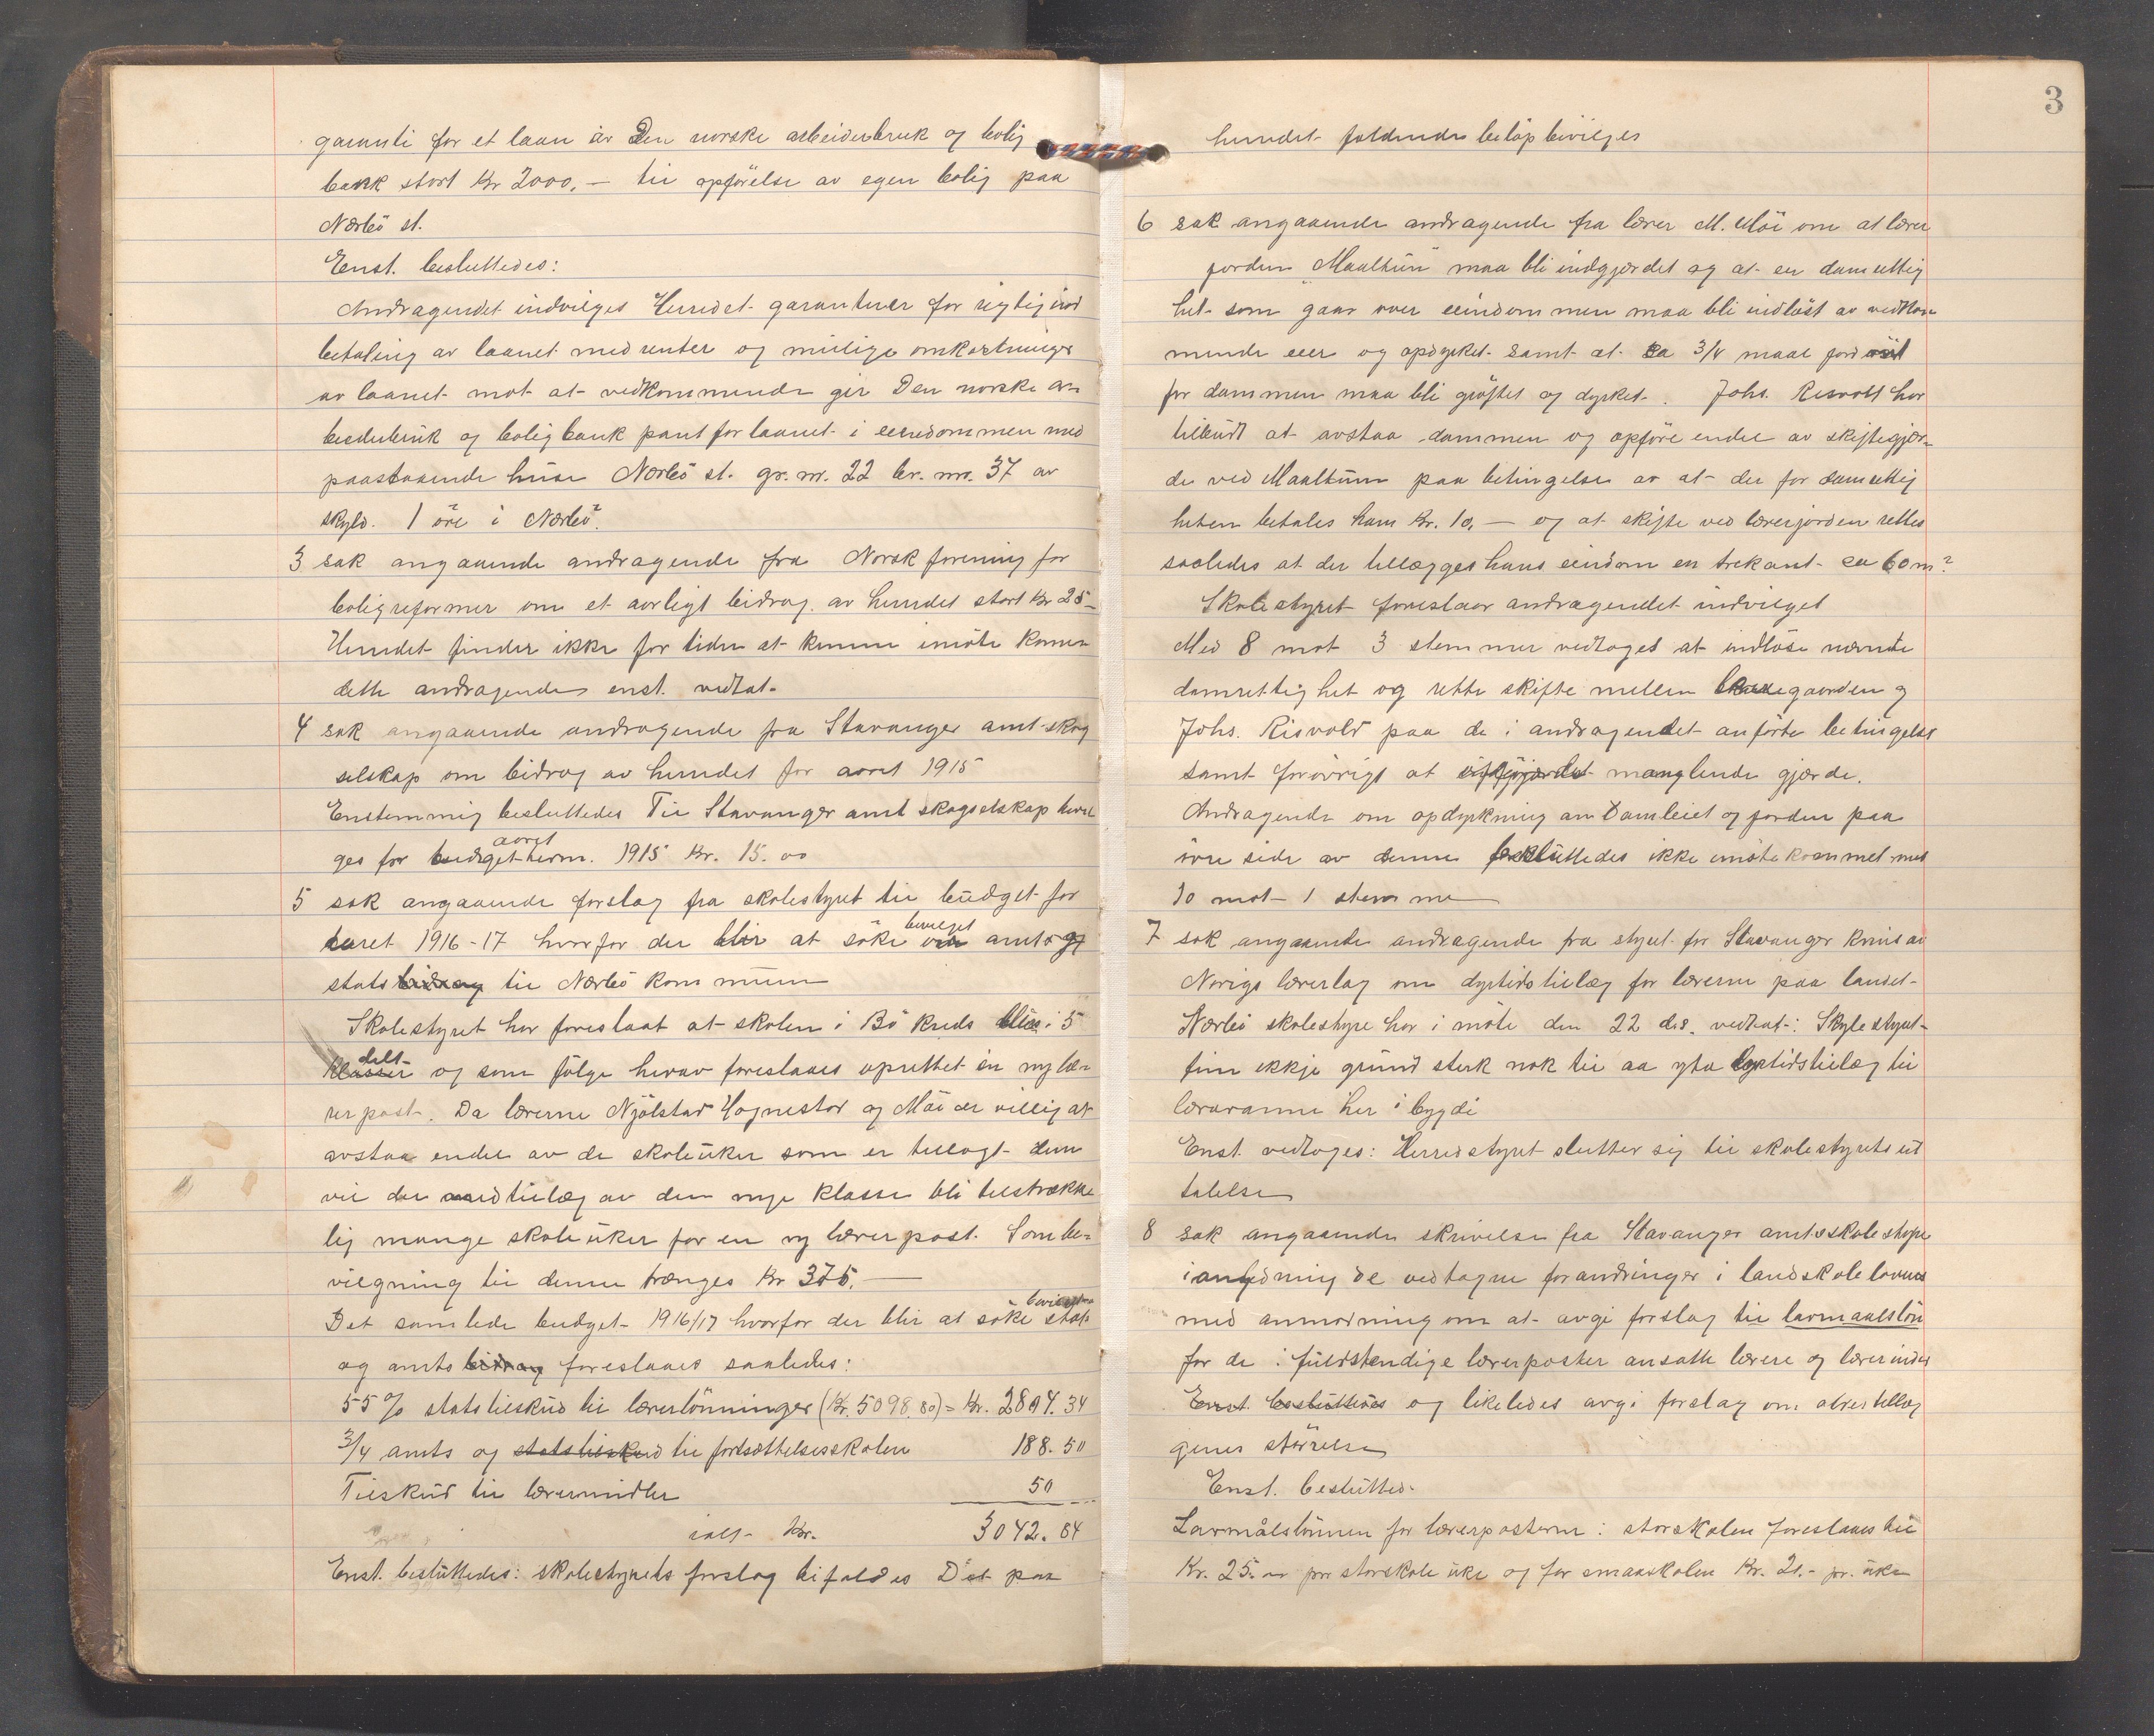 garanti for et laan av Den norske arbeiderbruk og bolig
bank stort Kr 2000,- til opförelse av egen bolig paa
Nærbö st.
Enst. besluttedes:
Andragendet indvilges Herredet garanterer for rigtig ind
betaling av laanet med renter og mulige omkostninger
av laanet mot at vedkommende gir Den norske ar-
beiderbruk og boligbank pant for laanet i eiendommen med
paastaaende huse Nærbö st. gr. nr. 22 br. nr. 37 av
skyld. 1 öre i Nærbö.
3 sak angaaende andragende fra Norsk forening for
boligreformer om et aarligt bidrag av herredet stort Kr 25-
Herredet finder ikke for tiden at kunne imöte komme
dette andragende enst. vedtat.
4 sak angaaende andragende fra Stavanger amt skog
selskap om bidrag av herredet for aaret 1915
Enstemmig besluttedes Til Stavanger amt skogselskap bevil
ges for budget aaret 1915 Kr. 15.00
5 sak angaaende forslag fra skolestyret til budget for
aaret 1916-17 hvorfor der blir at söke bevilget amts og
stats bidrag til Nærbö kommune
Skolestyret har foreslaat at skolen i Bö kreds blir i 5
klasser delt og som fölge herav foreslaaes oprettet en ny læ-
rerpost. Da lærerne Njölstad Hognestad og Möi er villig at
avstaa endel av de skoleuker som er tillagt dem
vil der med tillæg av den nye klasse bli tilstrække
lig mange skoleuker for en ny lærerpost. Som be-
vilgning til denne trænges Kr 375.-
Det samlede budget 1916/17 hvorfor der blir at söke bevilget stats
og amts bidrag foreslaaes saaledes:
55 % statstilskud til lærerlönninger (Kr. 5098.80) = Kr. 2804.34
3/4 amts og statstilskud til fortsættelsesskolen 188.50
Tilskud til læremidler 50
ialt Kr. 3042.84
Enst. besluttedes: skolestyrets forslag bifaldes Det paa
3
herredet faldende belöp bevilges
6 sak angaaende andragende fra lærer M. Möi om at lærer
jorden "Maaltun" maa bli indgjerdet og at en damrettig
het som gaar over eiendommen maa bli indlöst av vedkom
mende eier og opdyrket samt at ca 3/4 maal jord
for dammen maa bli gröftet og dyrket. Johs. Risvold har
tilbudt at avstaa dammen og opföre endel av skiftegjær-
de ved Maaltun paa betingelse av at der for damrettig
heten betales ham Kr. 10,- og at skifte ved lærerjorden rettes
saaledes at der tillægges hans eiendom en trekant ca 60 m²
Skolestyret foreslaar andragendet indvilget
Med 8 mot 3 stemmer vedtoges at indlöse nævnte
damrettighet og rette skifte mellem gaarden og
Johs. Risvold paa de i andragendet anförte betingelser
samt forövrigt at manglende gjærde.
Andragende om opdyrkning av Damleiet og jorden paa
övre side av denne besluttedes ikke imötekommet med
10 mot 1 stemme
7 sak angaaende andragende fra styret for Stavanger krins av
Norigs lærerlag om dyrtidstillæg for lærerne paa landet.
Nærbö skolestyre har i möte den 22 ds. vedtat: Skulestyret
finn ikkje grund sterk nok til aa yta dyrtidstillæg til
læraranne her i bygdi
Enst. vedtoges: Herredstyret slutter sig til skolestyrets ut
talelse
8 sak angaaende skrivelse fra Stavanger amtsskolestyre
i anledning de vedtagne forandringer i landskoleloven
med anmodning om at avgi forslag til lavmaalslön
for de i fuldstendige lærerposter ansatte lærere og lærerinder
Enst. besluttedes og likeledes avgi forslag om alderstillæg
genes störrelse
Enst. besluttes.
Lavmålslönnen for lærerposterne i storskolen foreslaaes til
Kr. 25.00 pr storskole uke og for smaaskolen Kr. 20.- pr. uke